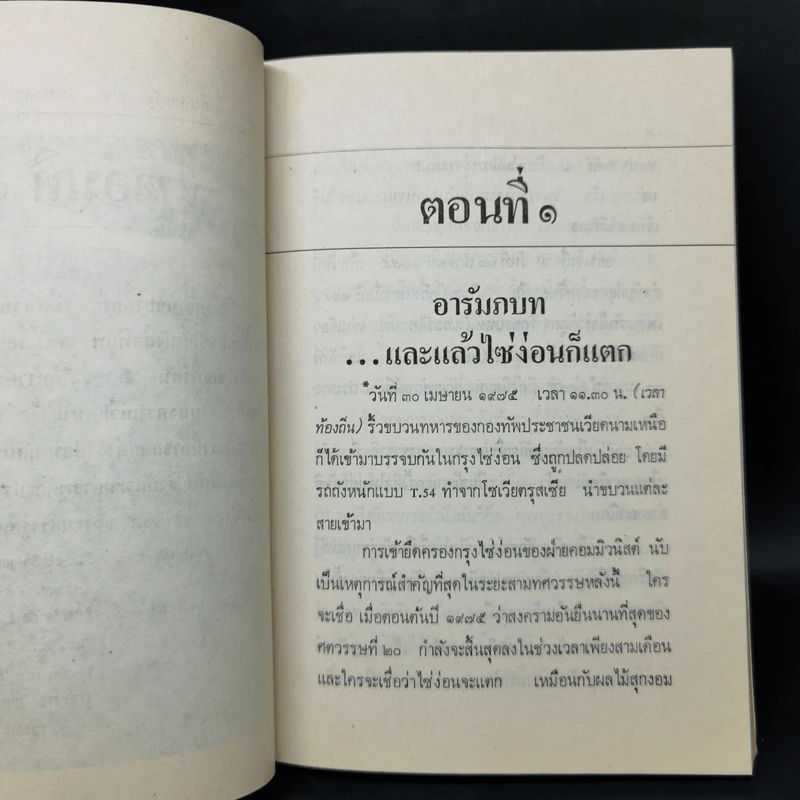 ตอนที่ ๑
อารัมภบท
...และแล้วไซ่ง่อนก็แตก
"วันที่ ๓๐ เมษายน ๑๙๗๕ เวลา ๑๑.๓๐ น. (เวลา
ท้องถิ่น) ริ้วขบวนทหารของกองทัพประชาชนเวียดนามเหนือ
ก็ได้เข้ามาบรรจบกันในกรุงไซ่ง่อน ซึ่งถูกปลดปล่อย โดยมี
รถถังหนักแบบ T.54 ทำจากโซเวียตรุสเซีย นำขบวนแต่ละ
สายเข้ามา
การเข้ายึดครองกรุงไซ่ง่อนของฝ่ายคอมมิวนิสต์ นับ
เป็นเหตุการณ์สำคัญที่สุดในระยะสามทศวรรษหลังนี้ ใคร
จะเชื่อ เมื่อตอนต้นปี ๑๙๗๕ ว่าสงครามอันยืนนานที่สุดของ
ศตวรรษที่ ๒๐ กำลังจะสิ้นสุดลงในช่วงเวลาเพียงสามเดือน
และใครจะเชื่อว่าไซ่ง่อนจะแตก เหมือนกับผลไม้สุกงอม